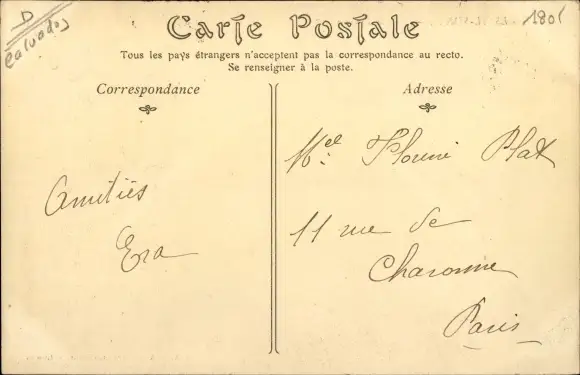 D
Calvados
1801
Carte Postale
Tous les pays étrangers n'acceptent pas la correspondance au recto.
Se renseigner à la poste.
Correspondance
Adresse
Amitiés
Era
Mel Plat
11 rue de
Charonne
Paris